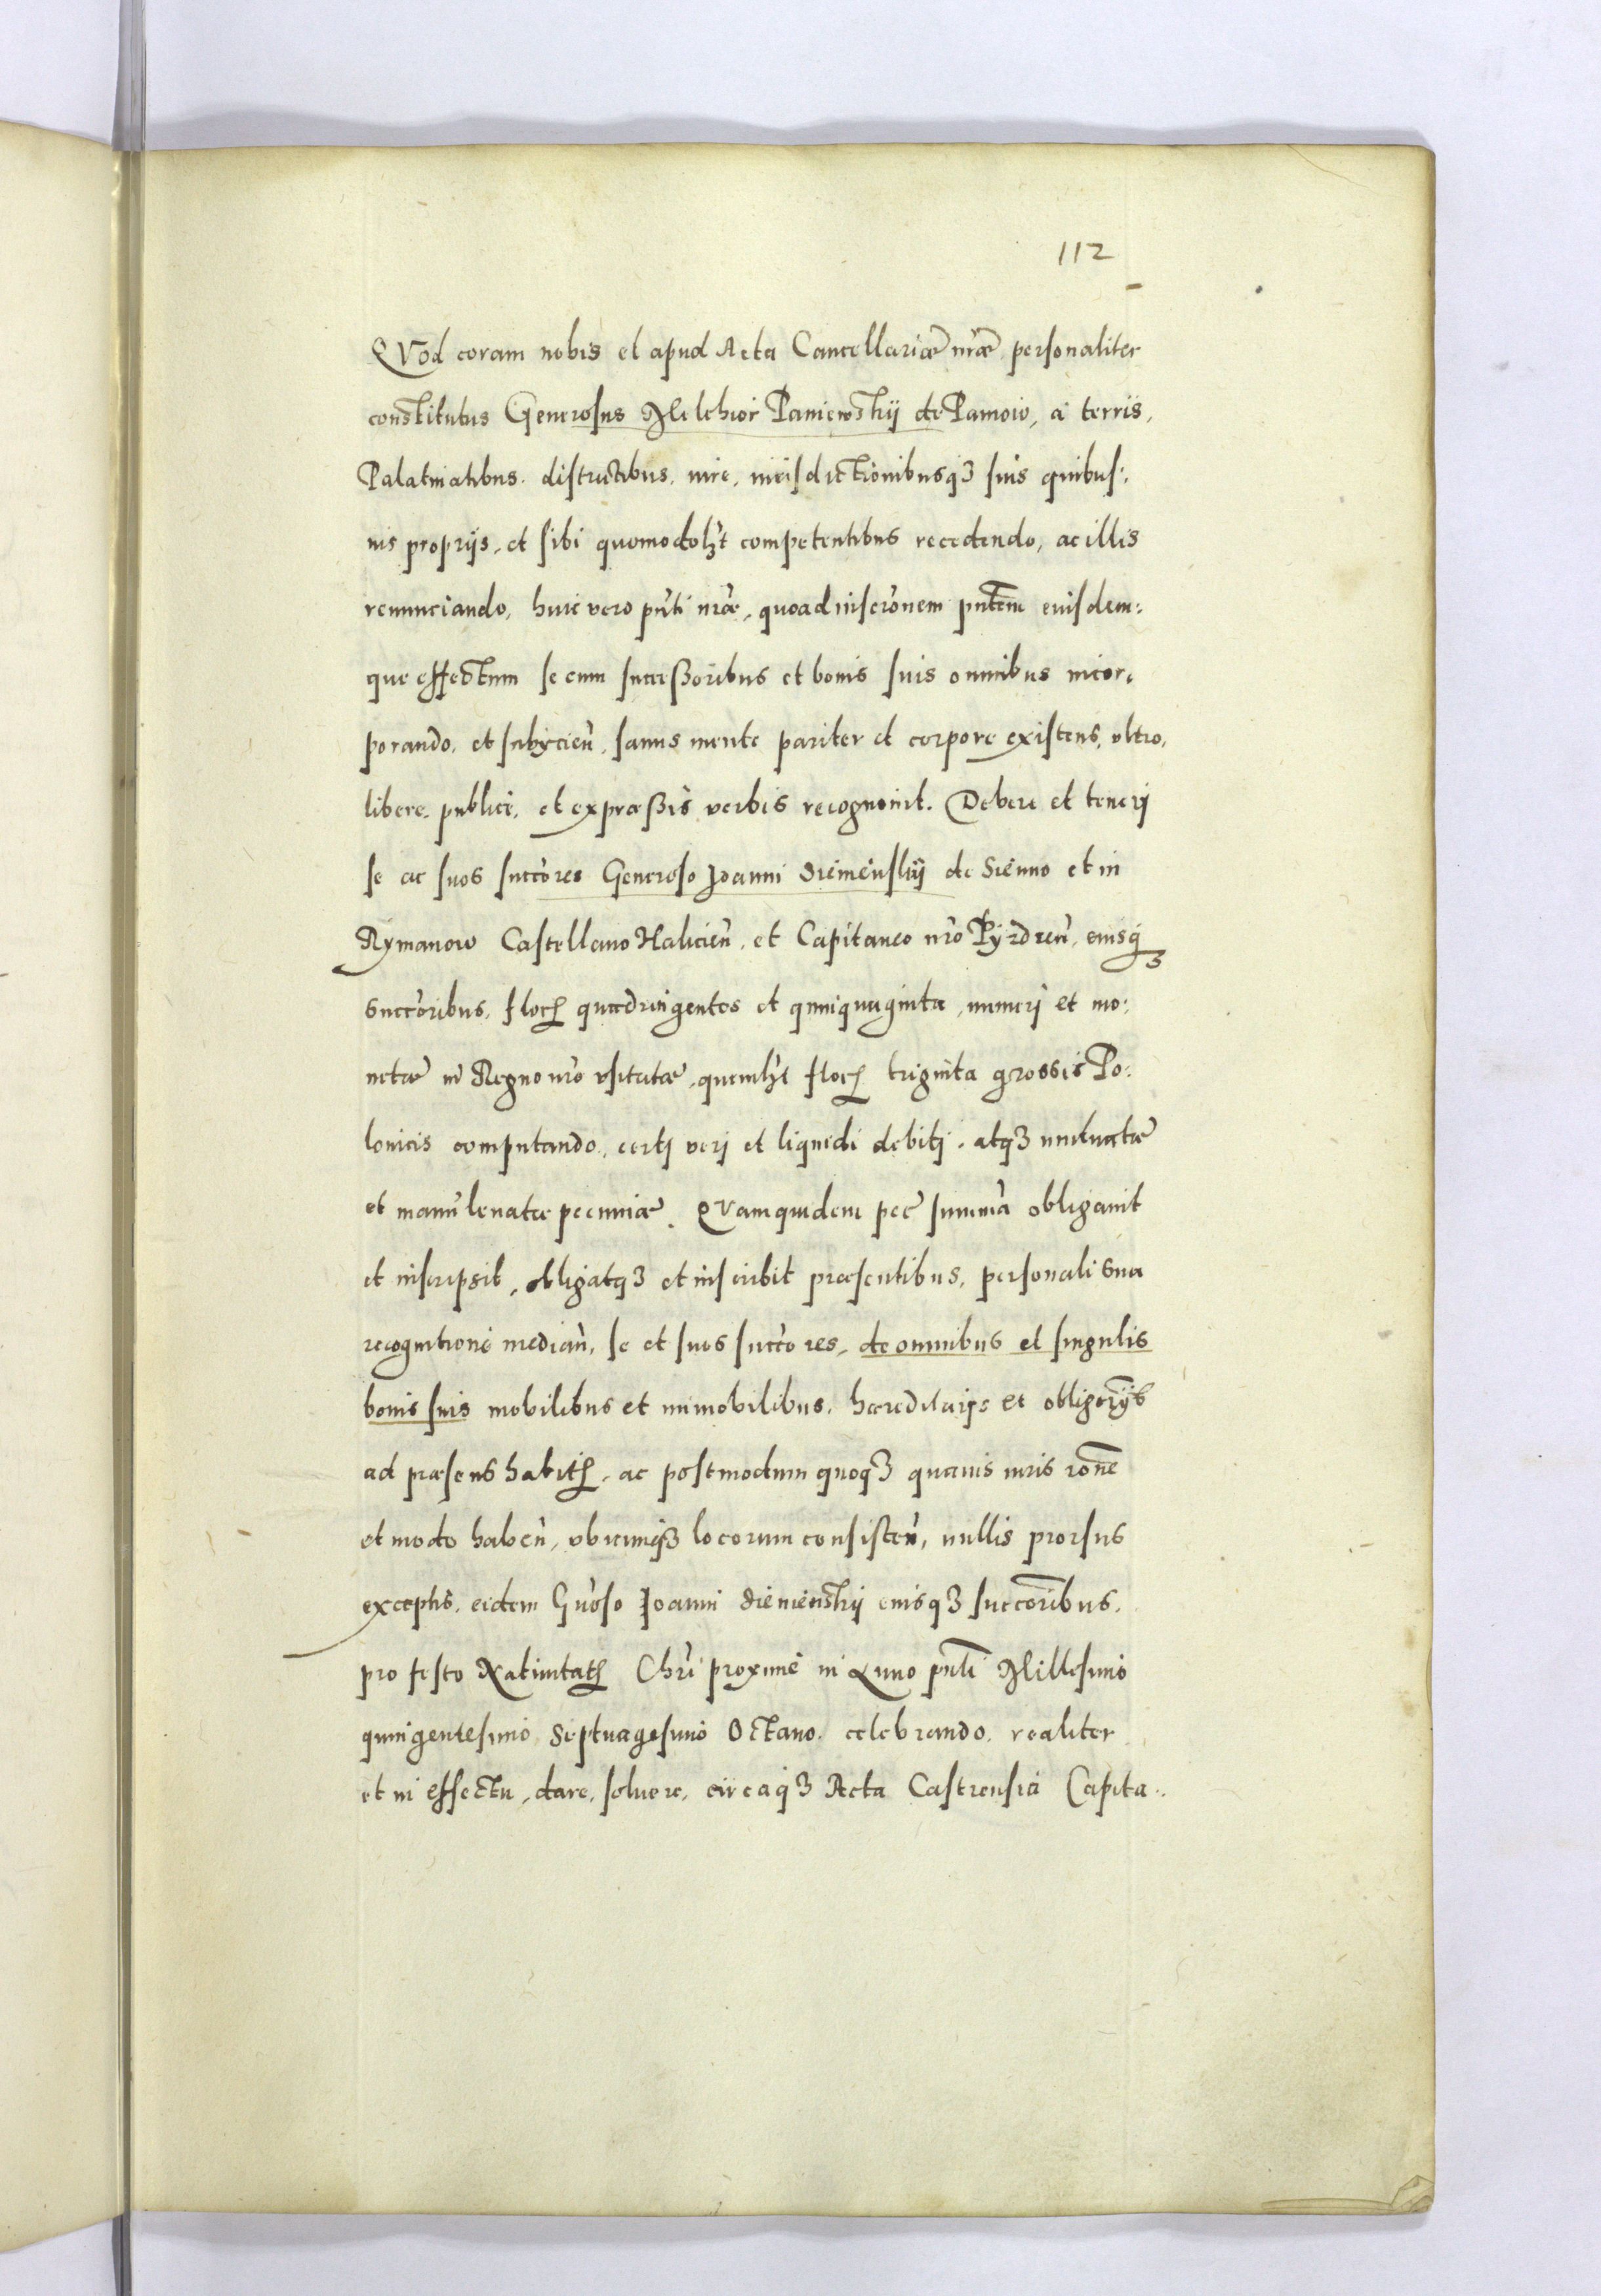 112
QVod coram nobis et apud Acta Cancellariæ nr̃æ personaliter
constitutus Generosus Melchior Paniewskij de Paniow, a terris,
Palatinatibus, districtibus, iure, iurisdictionibusqꝫ suis quibus:
uis proprijs, et sibi quomodolꝫt competentibus recedendo, ac illis
renunciando, huic vero pñti nr̃æ, quoad inscr̃onem pñtem eiusdem:
que effectum se cum successoribus et bonis suis omnibus incor:
porando, et subijcieñ, sanus mente pariter et corpore existens, vltro,
libere, publice, et expraessis verbis recognouit. Debere et tenerj
se ac suos succ̃ores Generoso Joanni Sieniensky de Sienno et in
Rymanow Castellano Halicieñ, et Capitaneo nr̃o Pyzdreñ, eiusqꝫ
succ̃oribus, floꝝ quadringentos et quinquaginta, numerj et mo:
netæ in Regno nr̃o vsitatæ, quemlꝫt floꝝ triginta grossis Po:
lonicis computando, certj verj et liquidi debitj, atqꝫ mutuatæ
et manu leuatæ pecuniæ. QVam quidem pec̃ summã obligauit
et inscripsit, obligatqꝫ et inscribit praesentibus, personali sua
recognitione mediañ, se et suos succ̃ores, de omnibus et singulis
bonis suis mobilibus et immobilibus, haereditarijs et obligr̃ijs
ad praesens habitꝭ, ac postmodum quoqꝫ quauis iuris rõne
et modo habeñ, vbicunqꝫ locorum consisteñ, nullis prorsus
exceptis, eidem Gñoso Joanni Sienienskij eiusqꝫ succ̃oribus,
pro festo Natiuitatꝭ Chr̃i proxime in Anno pñti Millesimo
quingentesimo Septuagesimo Octauo, celebrando, realiter
et in effectu, dare, soluere, circaqꝫ Acta Castrensia Capita: